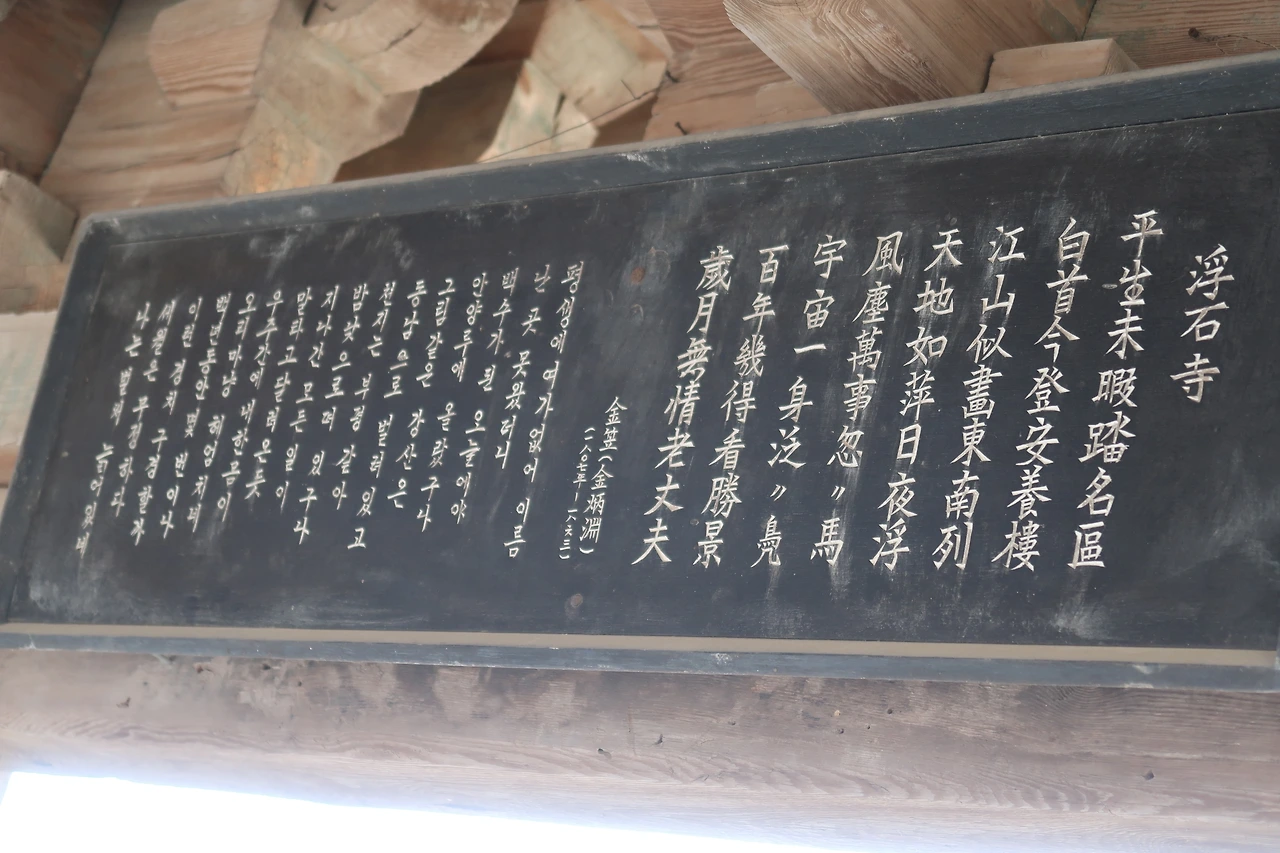 浮石寺
平生未暇踏名區
白首今登安養樓
江山似畵東南列
天地如萍日夜浮
風塵萬事忽〃馬
宇宙一身泛〃鳧
百年幾得看勝景
歲月無情老丈夫
金笠(金炳淵)
(一八〇七年-一八六三)
평생에 여가 없어 이름
난 곳 못왔더니
백수가 된 오늘에야
안양루에 올랐구나
그림같은 강산은
동남으로 벌려있고
천지는 부평같아
밤낮으로 떠 있구나
지나간 모든 일이
말타고 달려온듯
우주간에 내 한몸이
오리마냥 헤엄치네
백년동안 몇 번이나
이런 경치 구경할가
세월은 무정하다
나는 벌써 늙어있네